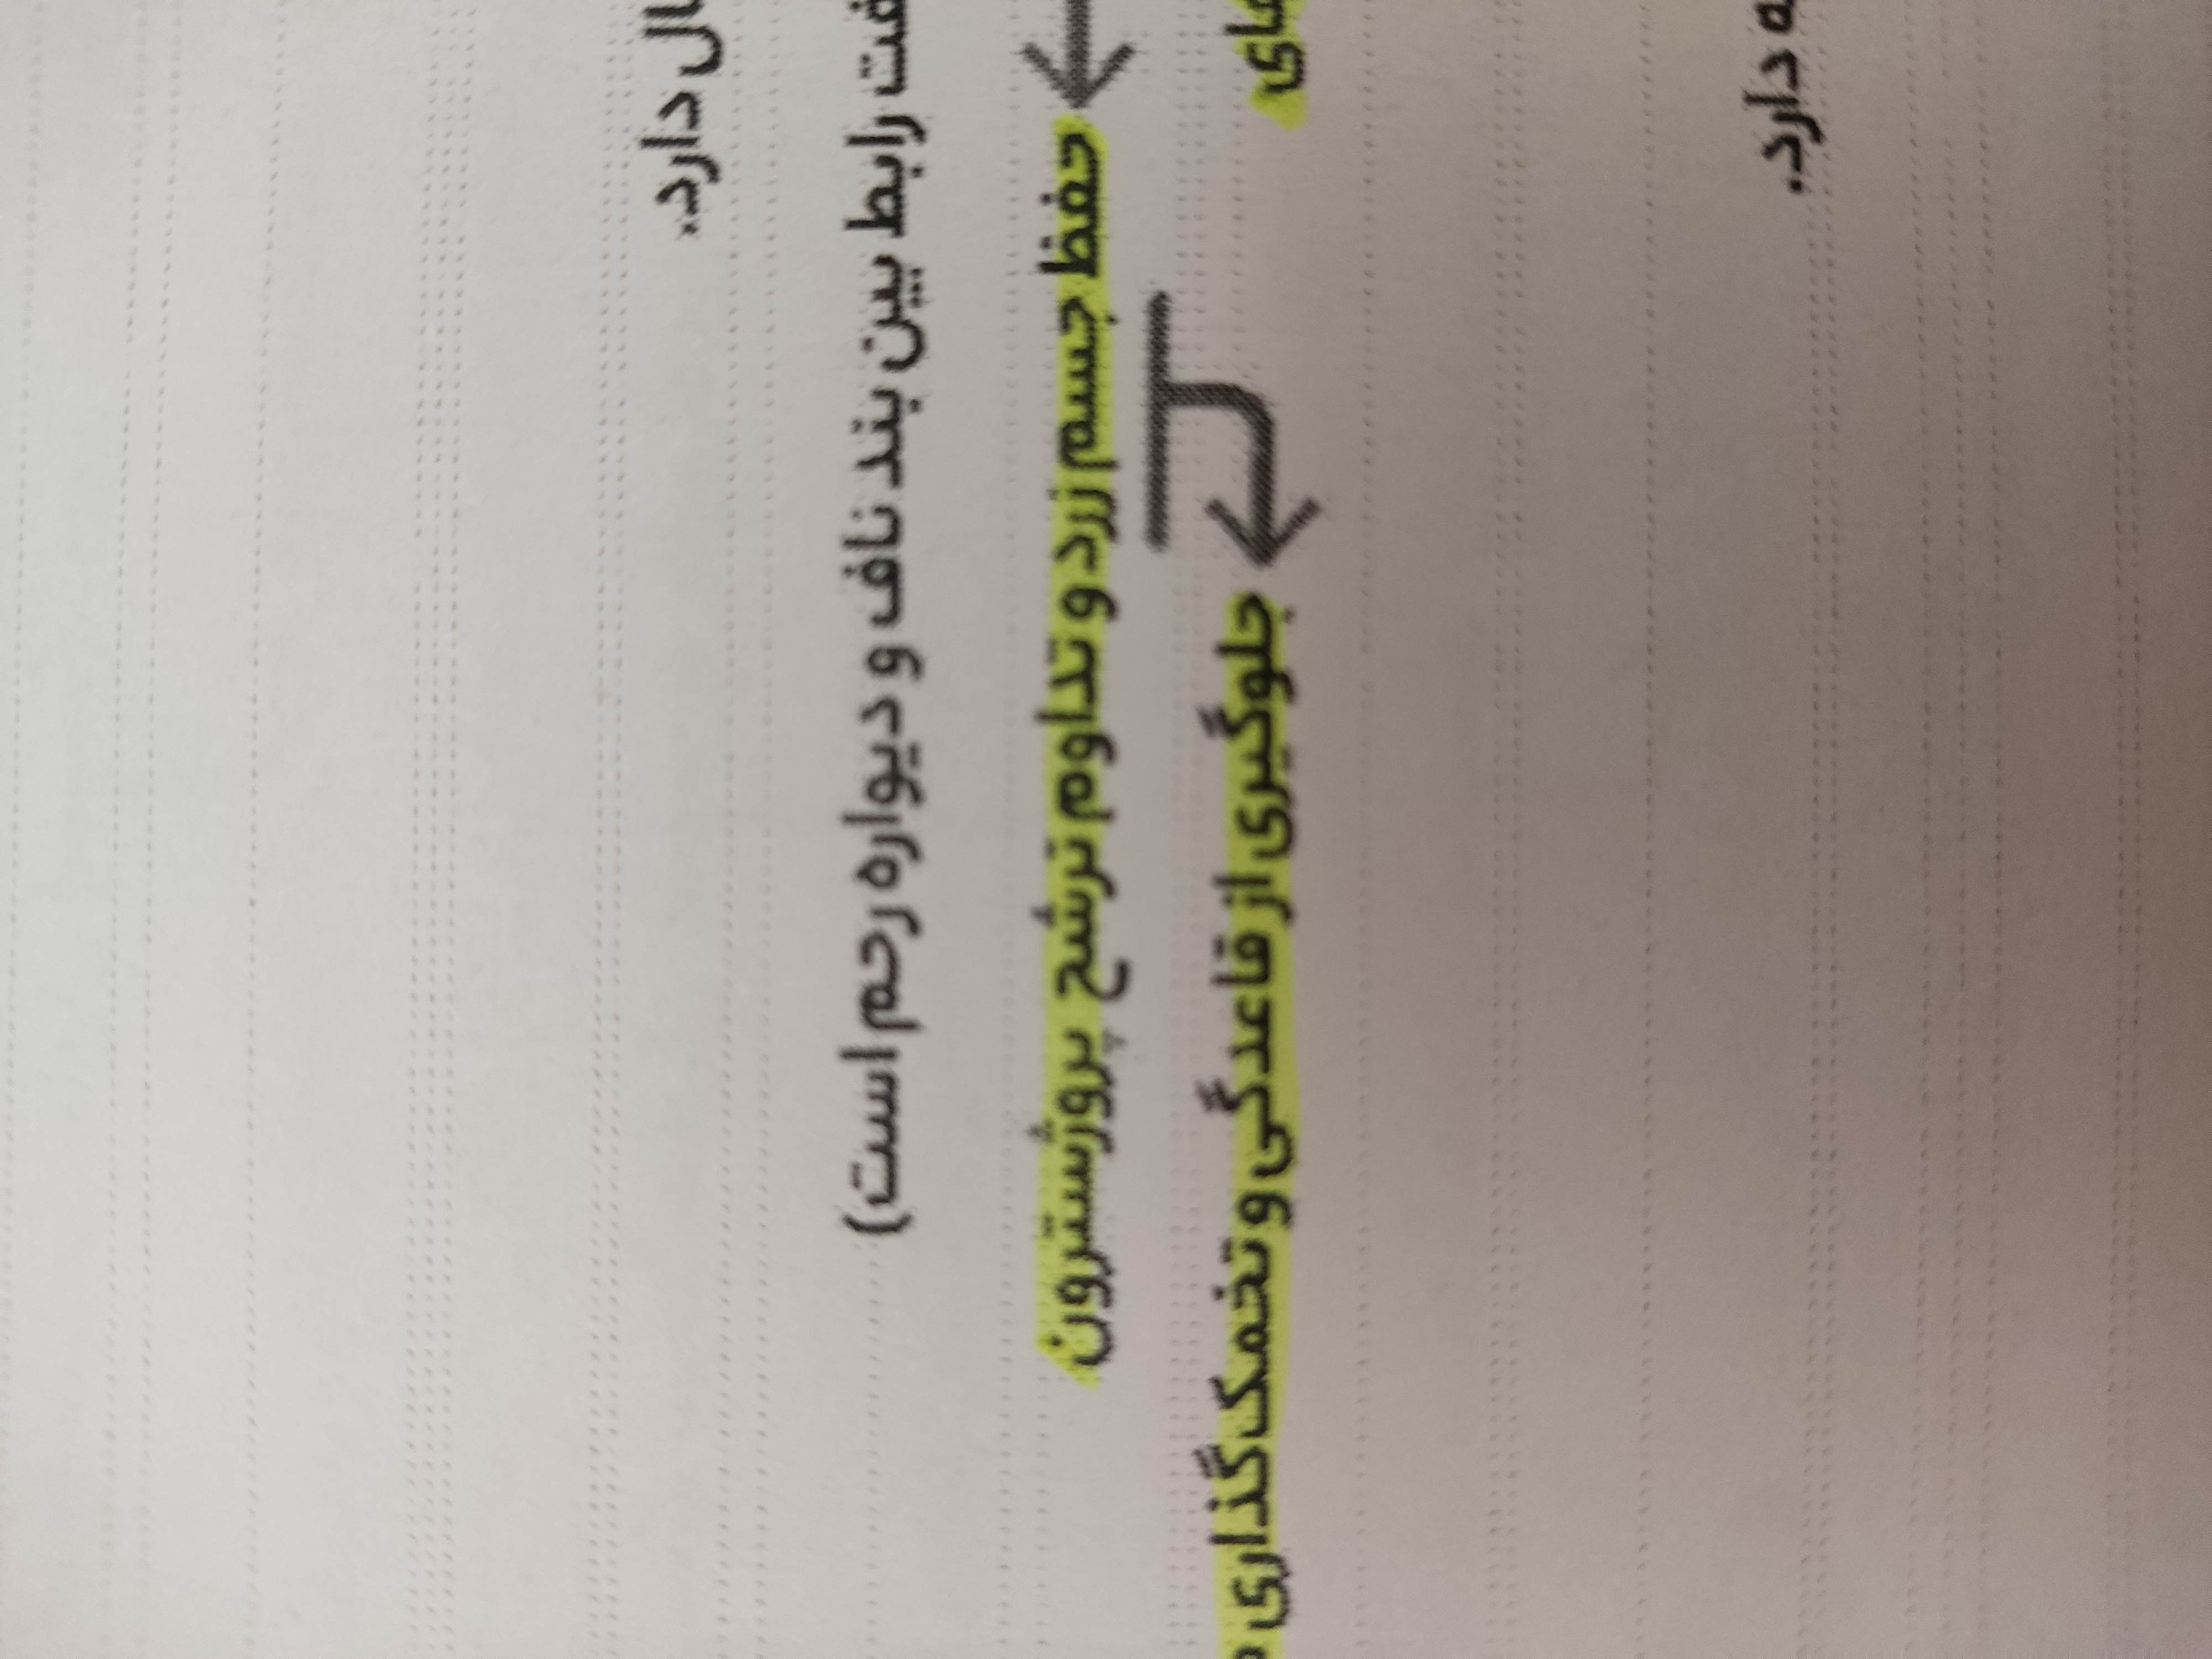 دارد.
رابط بین بند ناف و دیواره رحم است)
حفظ جسم زرد و تداوم ترشح پروژسترون
جلوگیری از قاعدگی و تخمک‌گذاری
دارد.